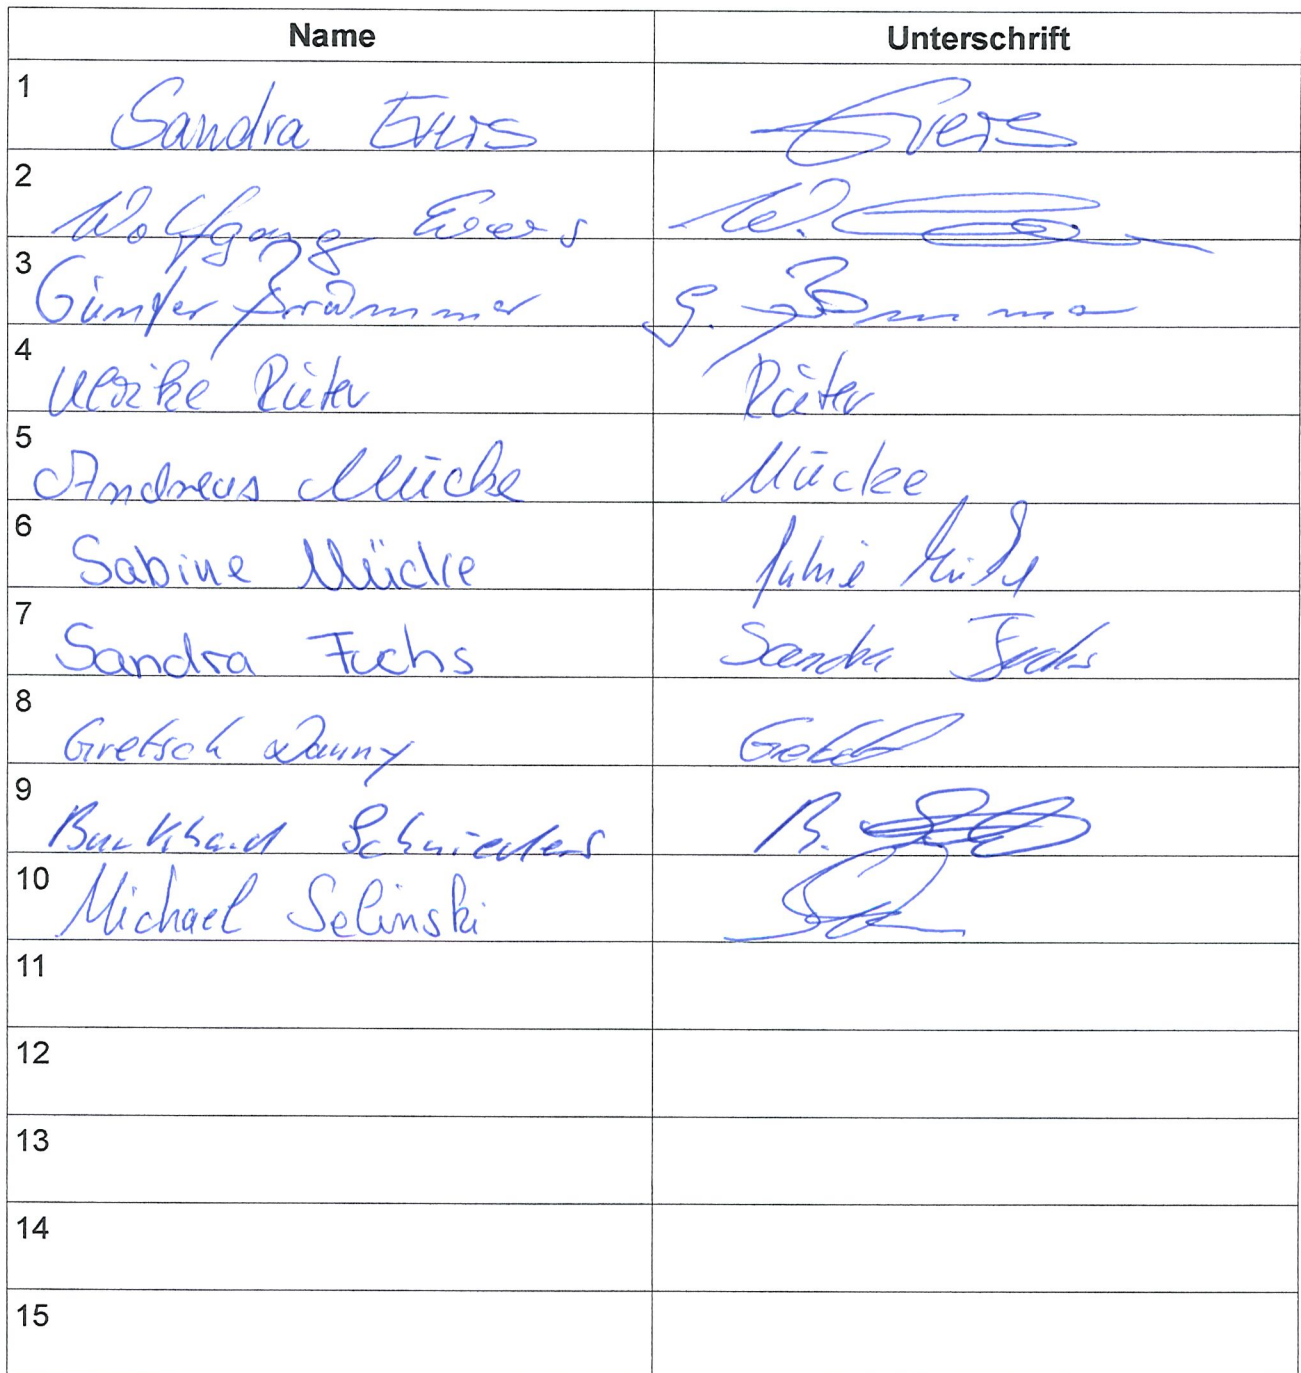 Name Unterschrift
1 Sandra Evers Evers
2 Wolfgang Evers W.
3 Günter Brammer G.
4 Ulrike Rüter Rüter
5 Andreas Mücke Mücke
6 Sabine Mücke
7 Sandra Fuchs Sandra Fuchs
8 Gretsch Danny
9 Burkhard Schnieders B.
10 Michael Selinski
11
12
13
14
15